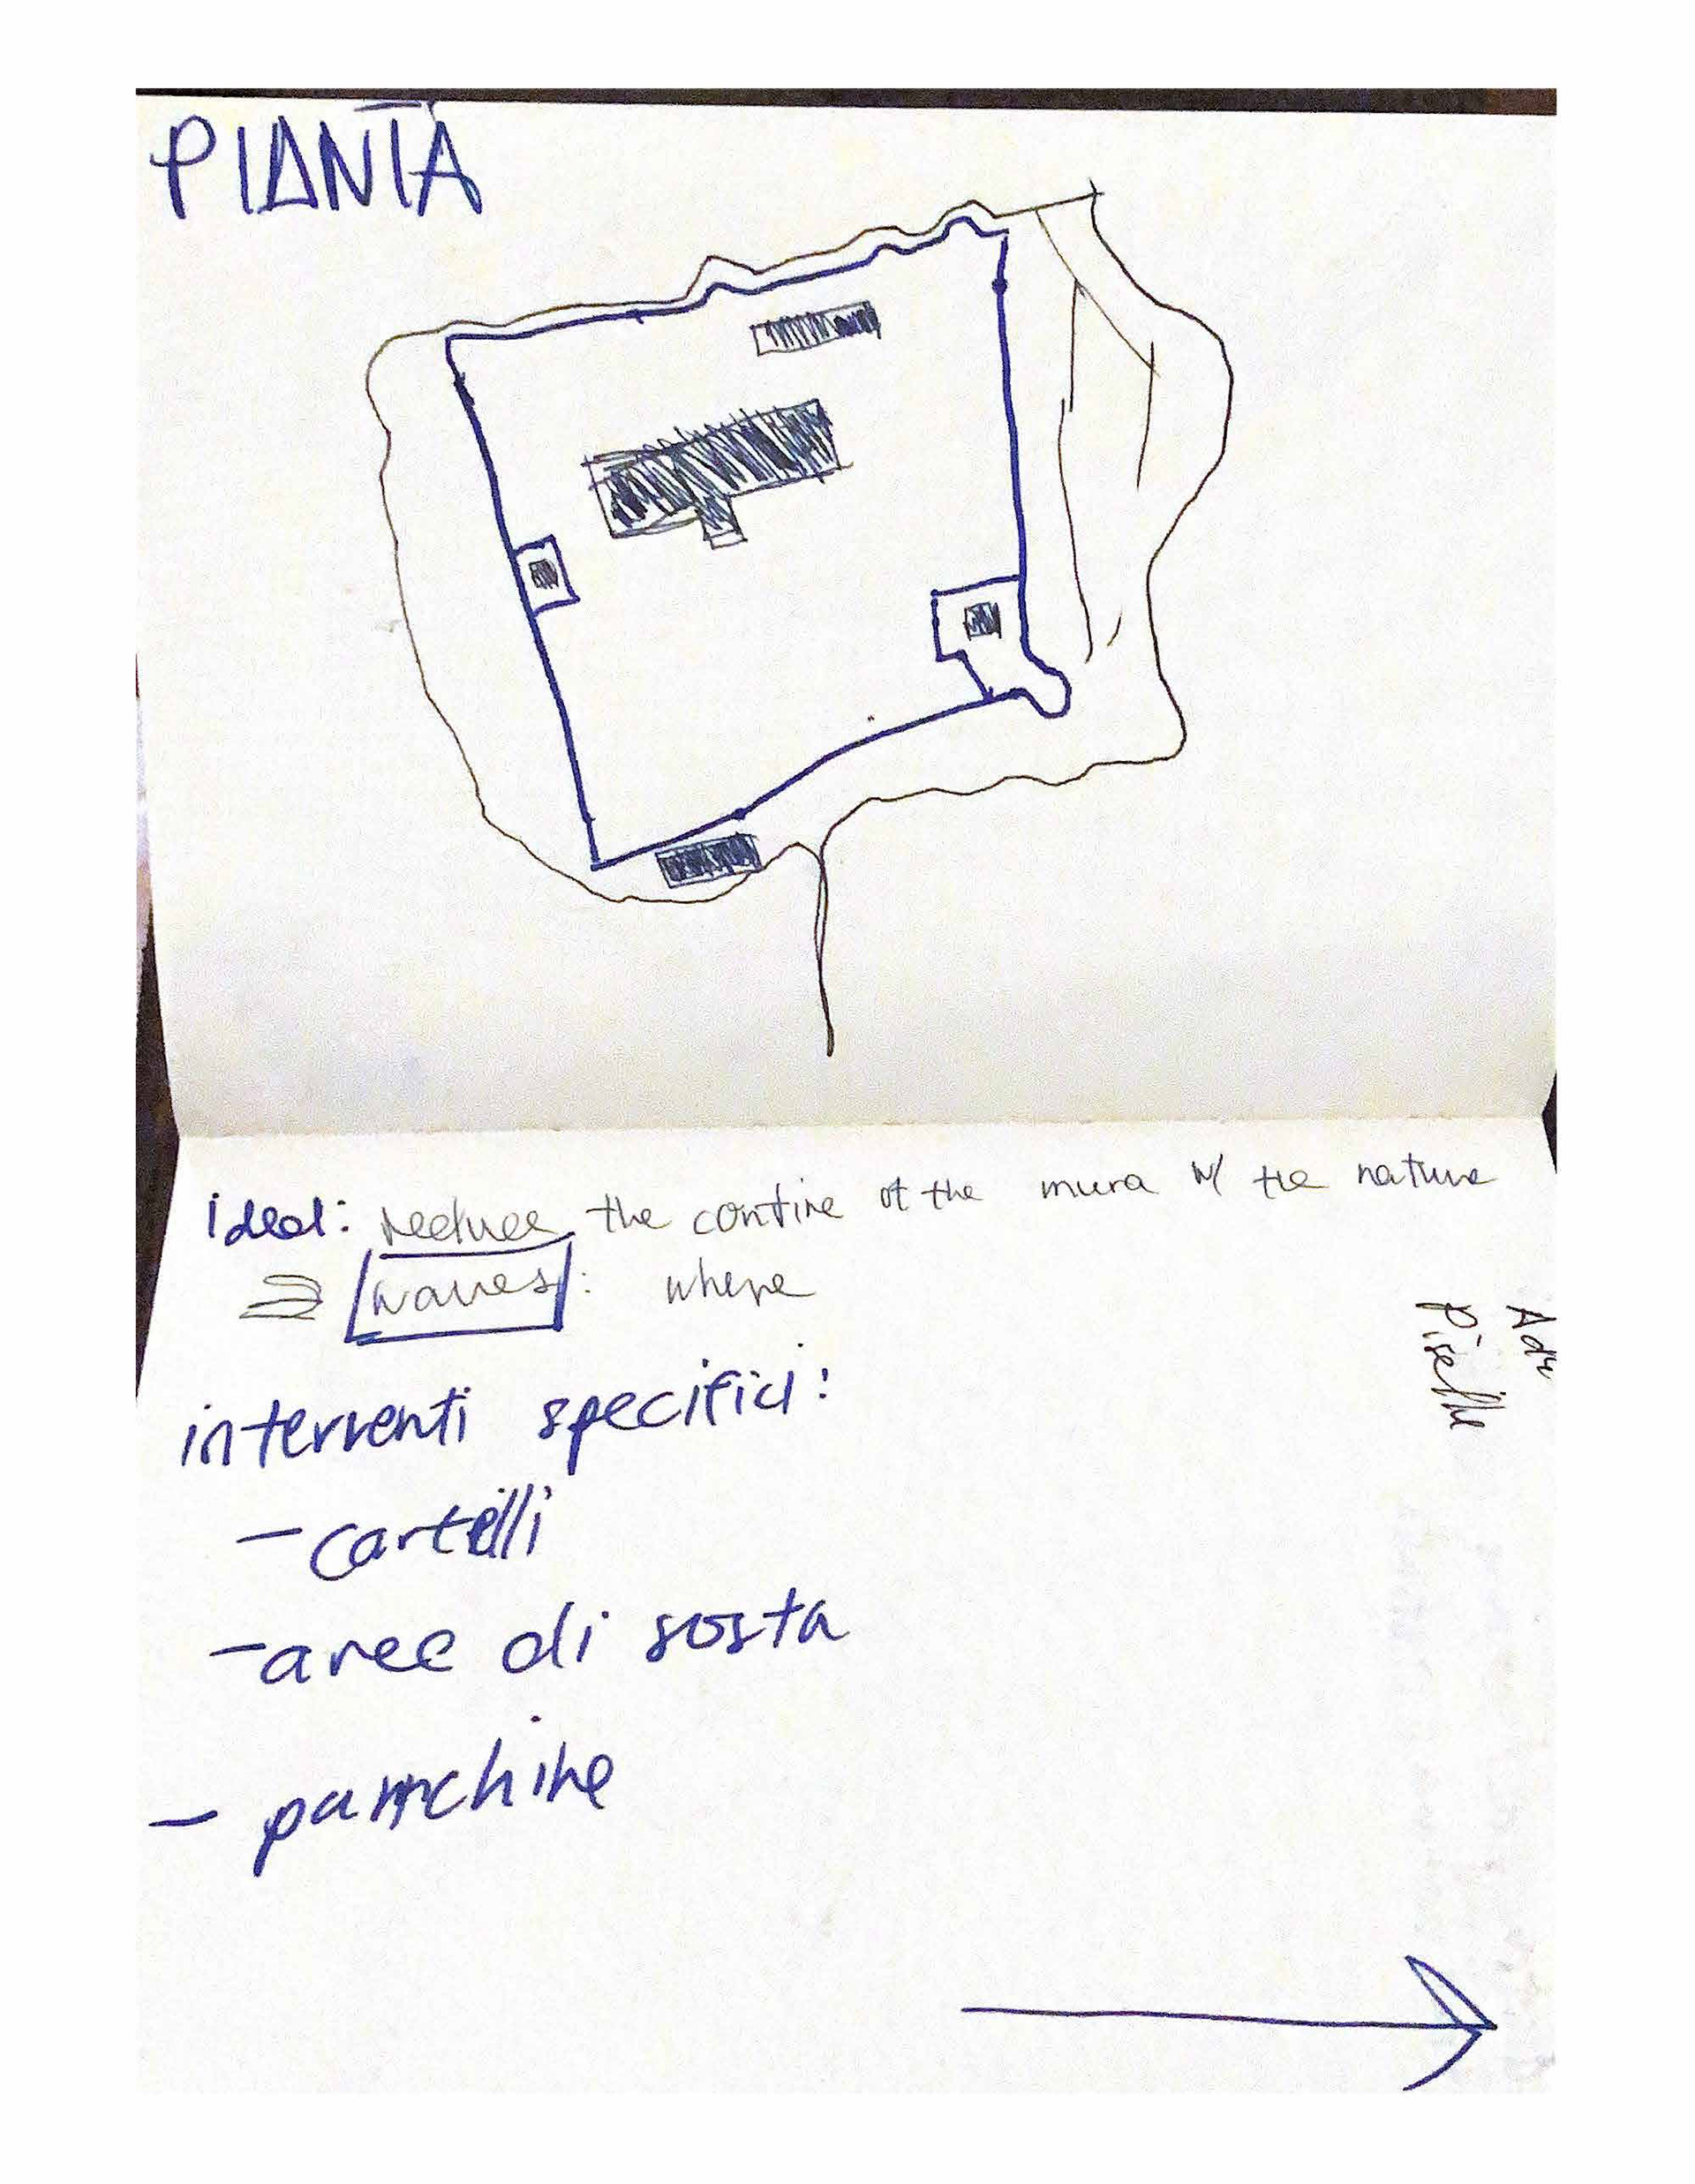 PIANTA
ideal: reduce the confine of the mura w/ the nature
waves: where
interventi specifici:
- cartelli
- aree di sosta
- panchine